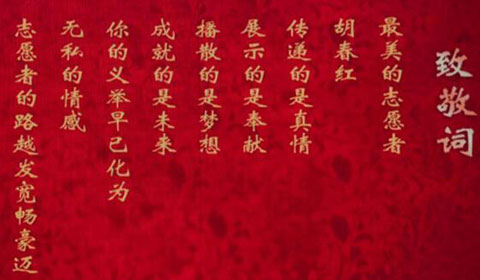 致敬词
最美的志愿者
胡春红
传递的是真情
展示的是奉献
播散的是梦想
成就的是未来
你的义举早已化为
无私的情感
志愿者的路越发宽畅豪迈